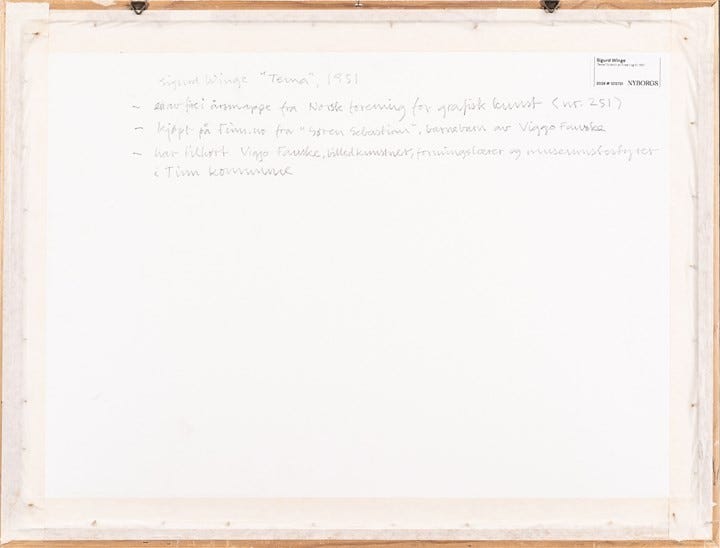 Sigurd Winge "Tema", 1951
- en av fire i årsmappe fra Norsk forening for grafisk kunst (nr. 251)
- kjøpt på Finn.no fra "Søren Sebastian", barnebarn av Viggo Fauske
- har tilhørt Viggo Fauske, billedkunstner, tegningslærer og museumsbestyrer
i Tinn kommune
Sigurd Winge
NYBORGS